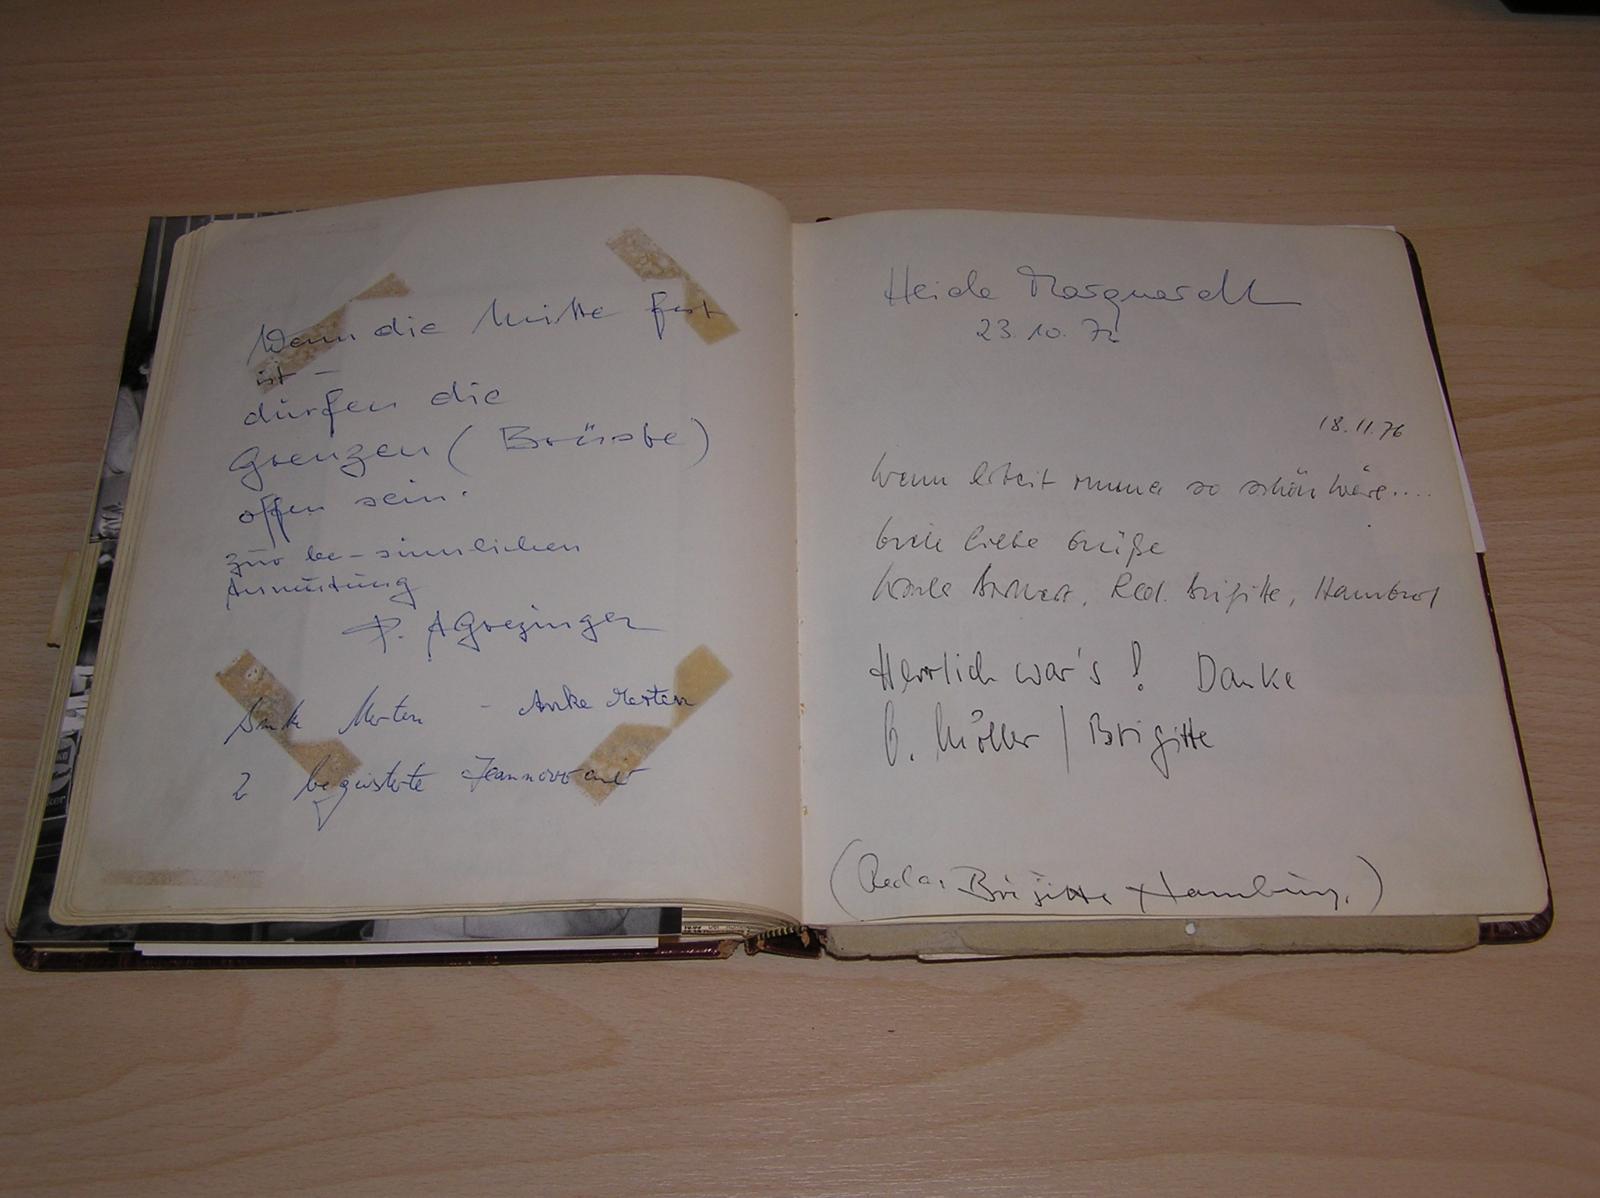 Wenn die Mitte fest
ist –
dürfen die
Grenzen ( Brüste )
offen sein.
zur be-sinnlichen
Anmutung
P. A Grezinger
Anke Merten – Anke Merten
2 begeisterte
Heide Marquardt
23. 10. 72
18. 11 76
Wenn Arbeit immer so schön wäre....
Viele liebe Grüße
Red. Brigitte, Hamburg
Herrlich war's! Danke
G. Möller / Brigitte
(Reda. Brigitte Hamburg.)